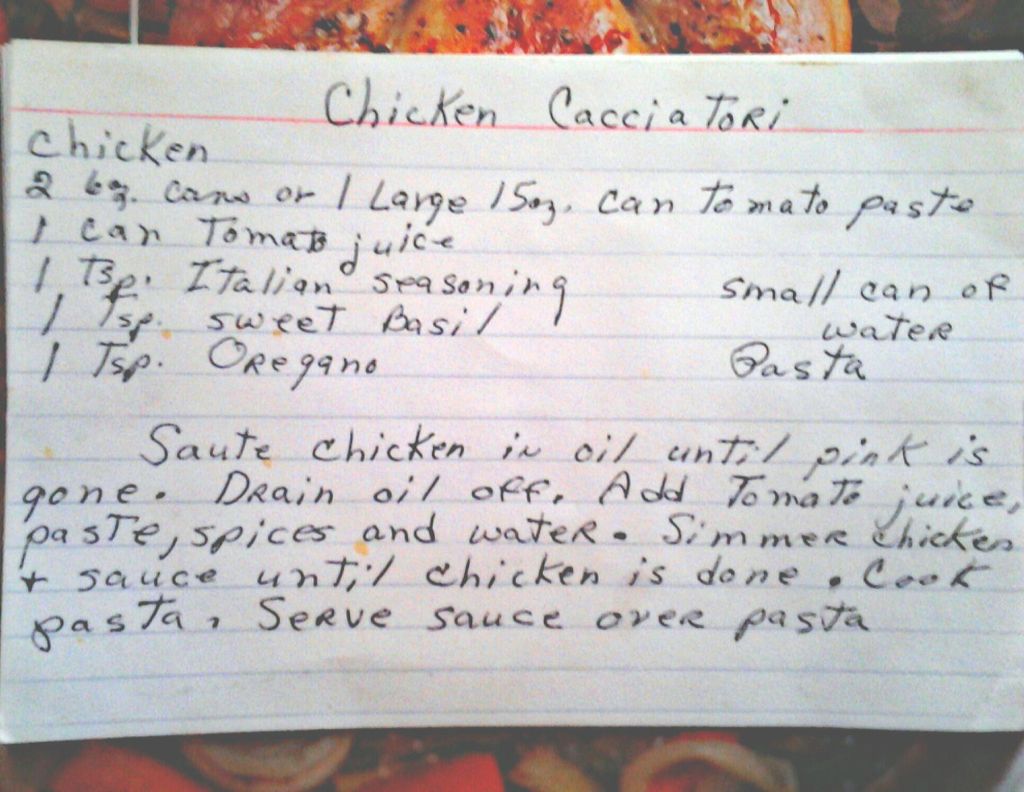 Chicken CacciaTori
chicken
2 6oz. cans or 1 Large 15oz. can tomato paste
1 can Tomato juice
1 Tsp. Italian seasoning small can of
1 Tsp. sweet Basil water
1 Tsp. Oregano Pasta
Saute chicken in oil until pink is
gone. Drain oil off. Add Tomato juice,
paste, spices and water. Simmer chicken
+ sauce until chicken is done. Cook
pasta. Serve sauce over pasta